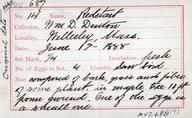 689
No. 14 Redstart
Name, Wm. D. Denton
Locality, Wellesley Mass.
Date, June 17 - 1888
Set Mark, 1/4 Incubation, fresh
No. of Eggs in Set, 4 Identity, Saw bird
Nest composed of bark, grass and fibres
of some plant, in maple tree 10 ft
from ground. One of the eggs is